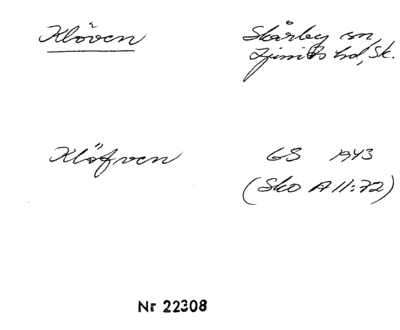 Klöven
Skårby sn,
Ljunits hd, Sk.
Klöfven
GS 1943
(Sko A 11:72)
Nr 22308